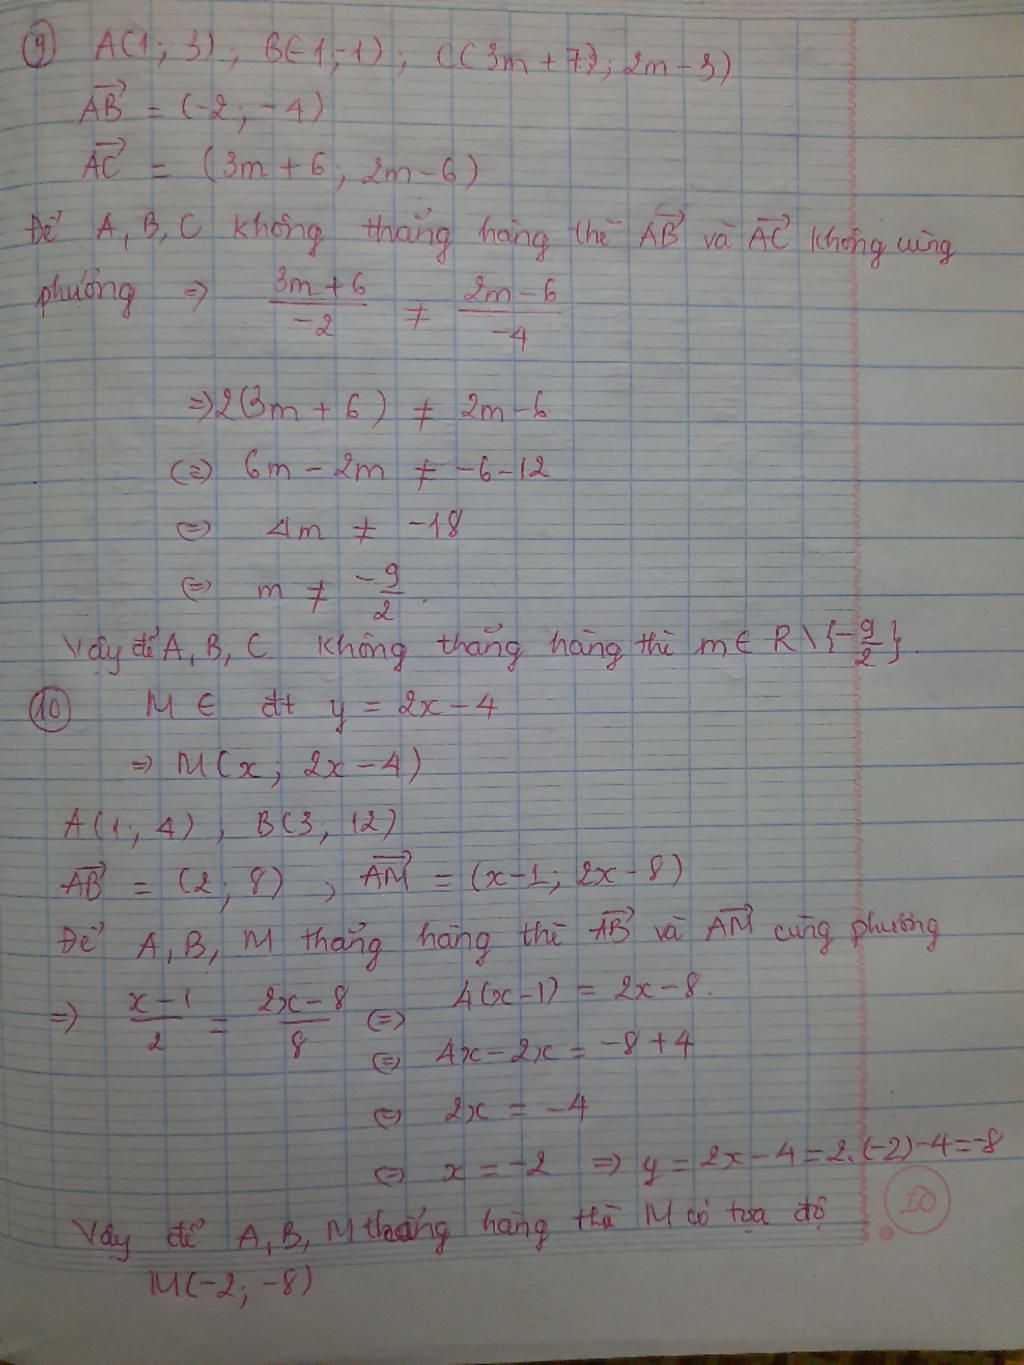 ⑨ A(1; 3), B(-1;-1), C(3m+7; 2m-3)
AB→ = (-2; -4)
AC→ = (3m+6; 2m-6)
Để A, B, C không thẳng hàng thì AB→ và AC→ không cùng
phương ⇒ (3m+6)/(-2) ≠ (2m-6)/(-4)
⇒ 2(3m+6) ≠ 2m-6
⇔ 6m - 2m ≠ -6-12
⇔ 4m ≠ -18
⇔ m ≠ -9/2.
Vậy để A, B, C không thẳng hàng thì m ∈ R\{-9/2}.
⑩ M ∈ đt y = 2x - 4
⇒ M(x; 2x-4)
A(1; 4), B(3; 12)
AB→ = (2; 8), AM→ = (x-1; 2x-8)
Để A, B, M thẳng hàng thì AB→ và AM→ cùng phương
⇒ (x-1)/2 = (2x-8)/8 ⇔ 4(x-1) = 2x-8.
⇔ 4x-2x = -8+4
⇔ 2x = -4
⇔ x = -2 ⇒ y = 2x-4 = 2.(-2)-4 = -8
Vậy để A, B, M thẳng hàng thì M có tọa độ
M(-2; -8)